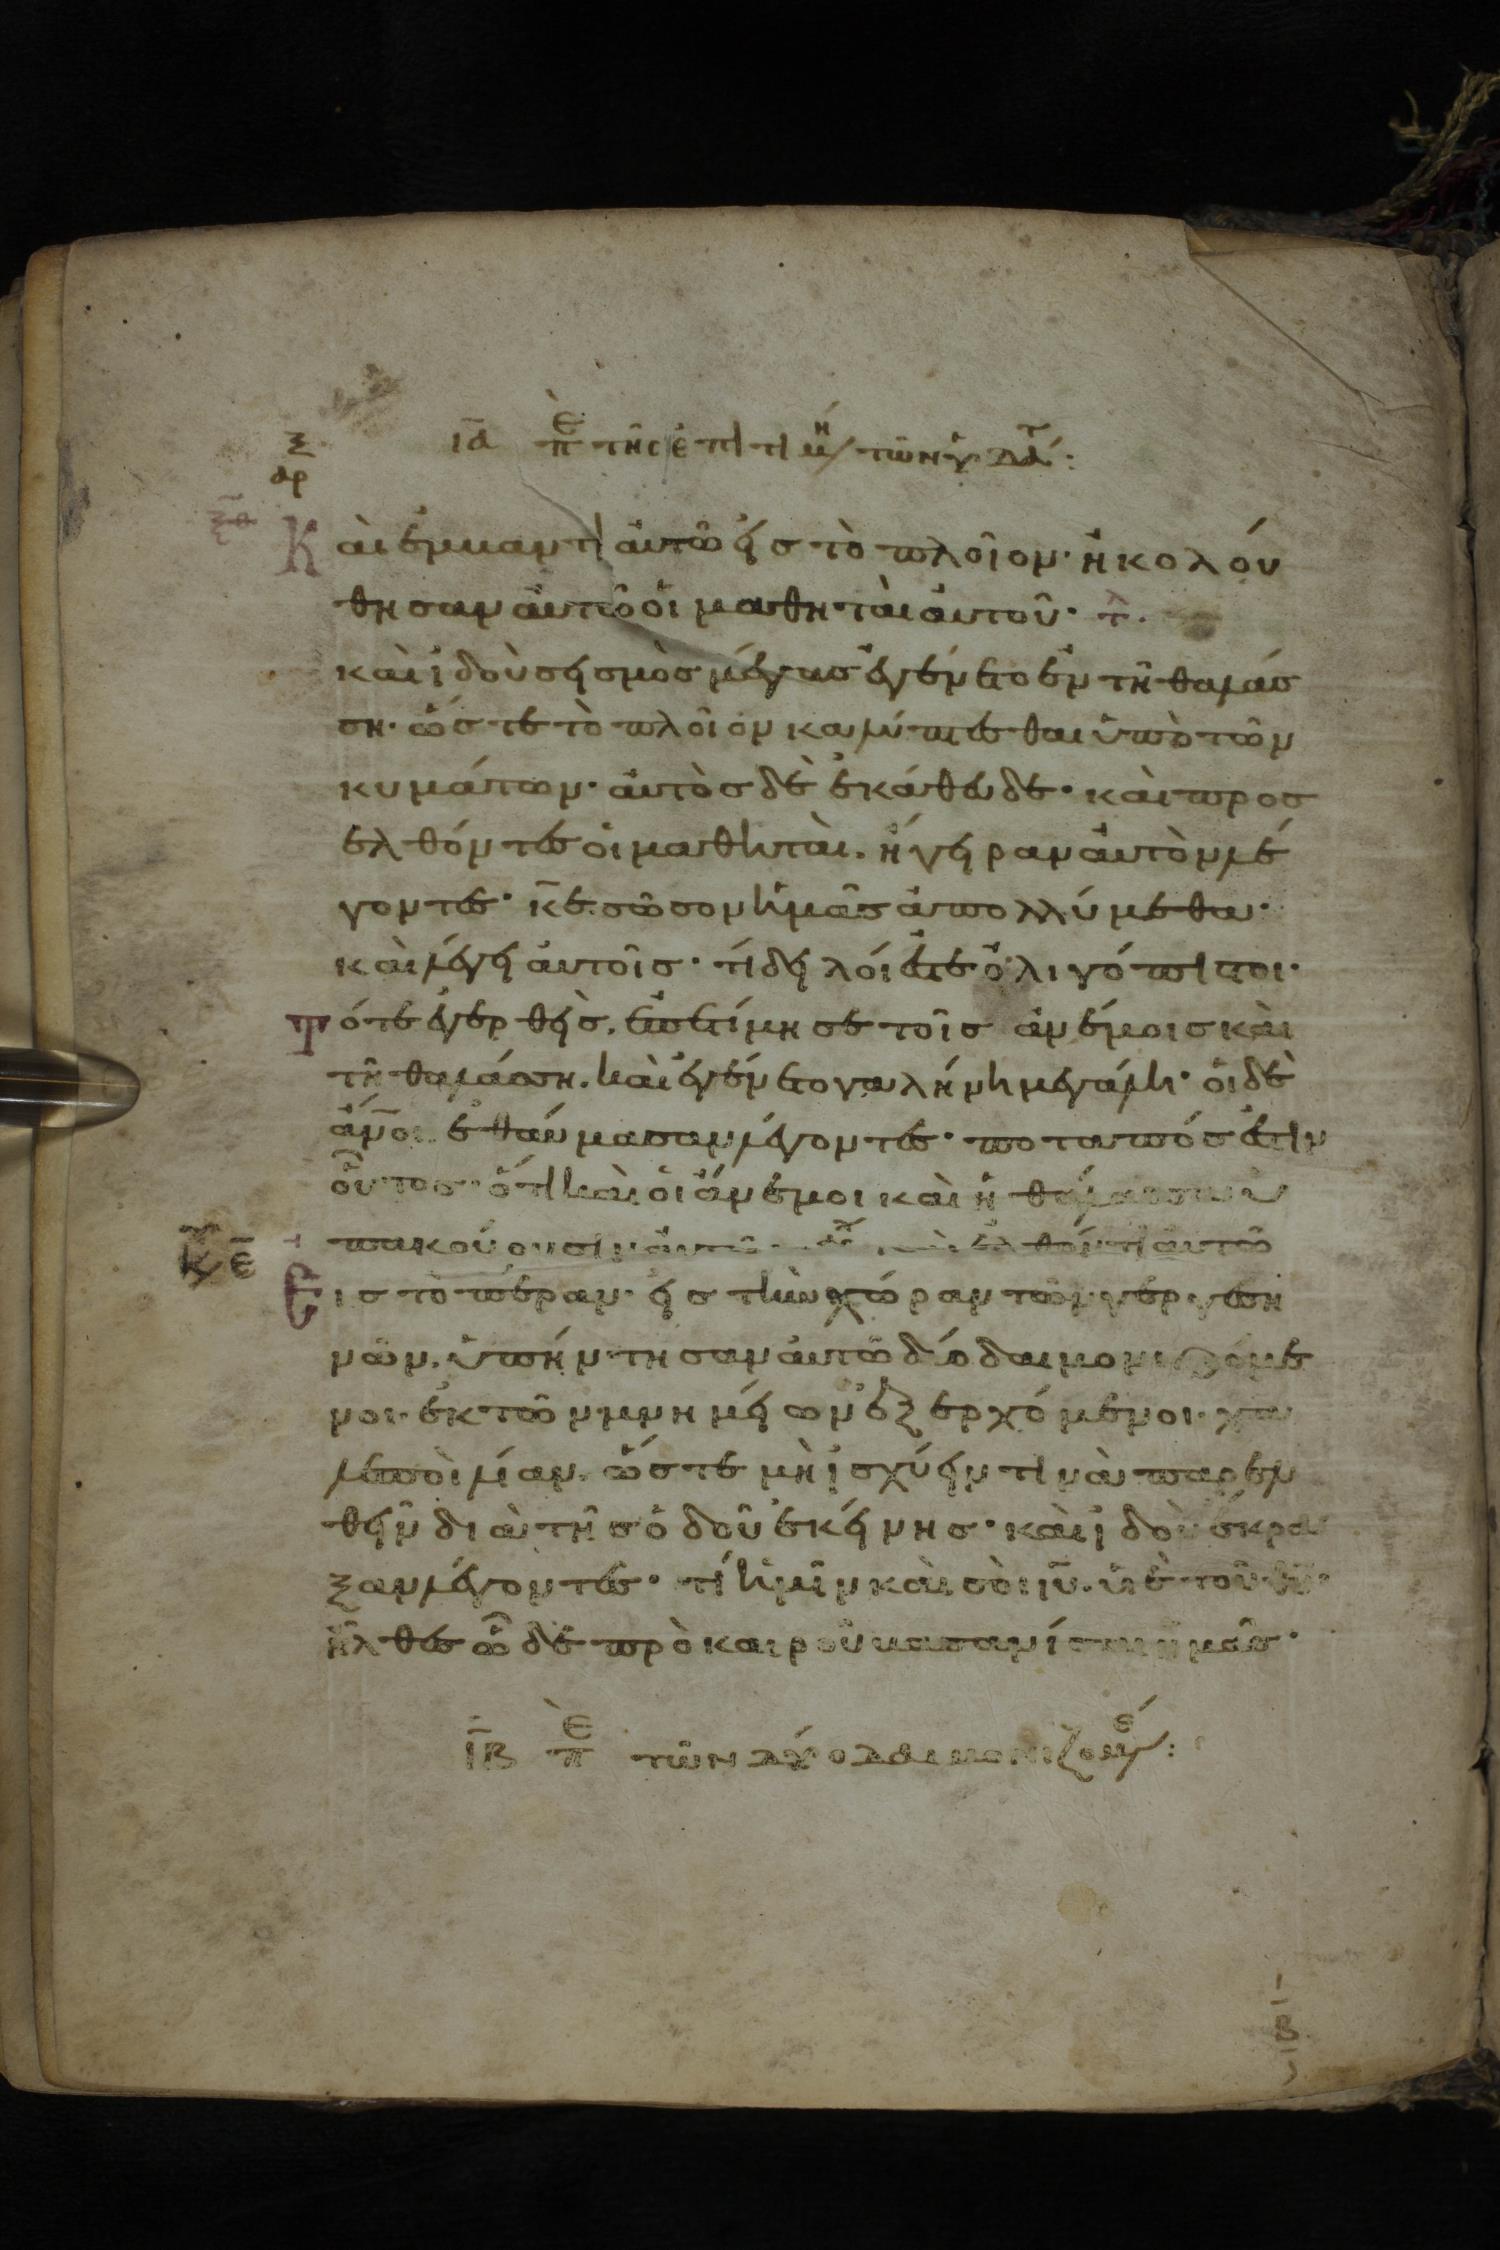 ΙΑ ΠΕ τῆς ἐπιτιμή τῶν ὑδάτ:
ξ
αρ
ξθ
Καὶ ἐμβάντι αὐτῶ εἰς τὸ πλοῖον· ἠκολού
θησαν αὐτῶ οἱ μαθηταὶ αὐτοῦ· τλ.
καὶ ἰδοὺ σεισμὸς μέγας ἐγένετο ἐν τῆ θαλάσ
ση· ὥστε τὸ πλοῖον καλύπτεσθαι ὑπὸ τῶν
κυμάτων· αὐτὸς δὲ ἐκάθευδε· καὶ προσ
ελθόντες οἱ μαθηταὶ. ἤγειραν αὐτὸν λέ
γοντες· κε σῶσον ἡμᾶς ἀπολλύμεθα·
καὶ λέγει αὐτοῖς· τί δειλοί ἐστε ὀλιγόπιστοι·
Τότε ἐγερθεὶς. ἐπετίμησε τοῖς ἀνέμοις καὶ
τῆ θαλάσση. καὶ ἐγένετο γαλήνη μεγάλη· οἱ δὲ
ἄνοι ἐθαύμασαν λέγοντες· ποταπός ἐστιν
οὗτος· ὅτι καὶ οἱ ἄνεμοι καὶ ἡ θάλασσα ὑ
πακούουσιν αὐτῶ καὶ ἐλθόντι αὐτῶ
Κυ ε
Εἰς τὸ πέραν· εἰς τὴν χώραν τῶν γεργεση
νῶν. ὑπήντησαν αὐτῶ δύο δαιμονιζόμε
νοι· ἐκ τῶν μνημείων ἐξερχόμενοι· χα
λεποὶ λίαν. ὥστε μὴ ἰσχύειν τινὰ παρελ
θεῖν διὰ τῆς ὁδοῦ ἐκείνης· καὶ ἰδοὺ ἔκρα
ξαν λέγοντες· τί ἡμῖν καὶ σοὶ ιυ. υἱὲ τοῦ θυ·
ἦλθες ὧδε πρὸ καιροῦ βασανίσαι ἡμᾶς·
ΙΒ ΠΕ τῶν δύο δαιμονιζομέ:
Β